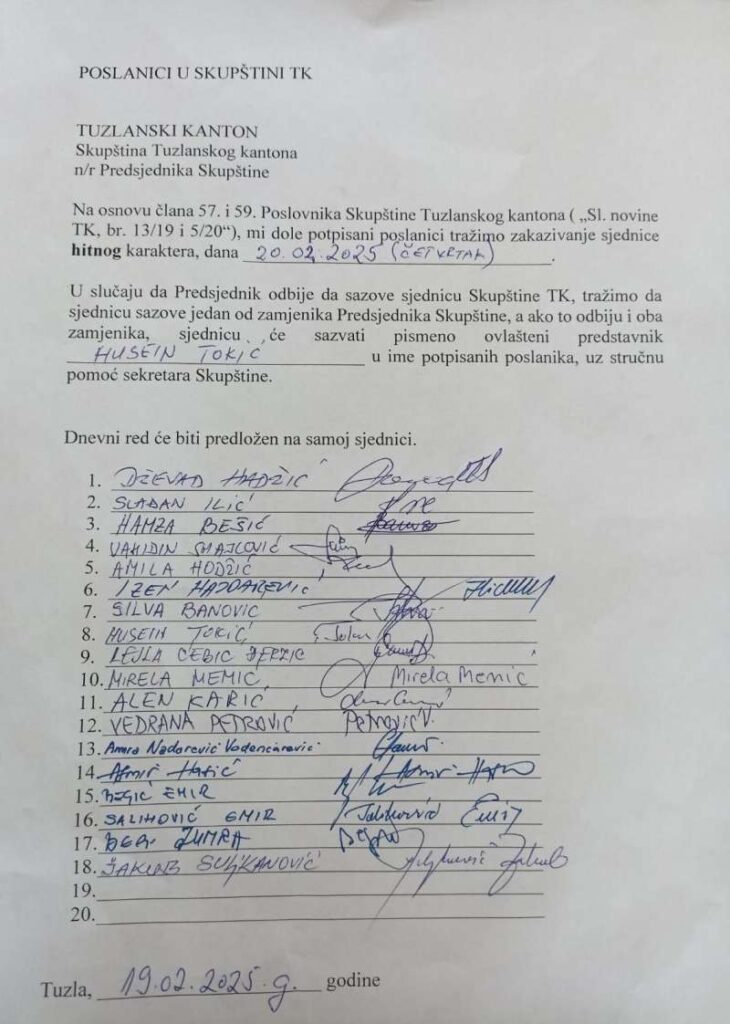 POSLANICI U SKUPŠTINI TK
TUZLANSKI KANTON
Skupština Tuzlanskog kantona
n/r Predsjednika Skupštine
Na osnovu člana 57. i 59. Poslovnika Skupštine Tuzlanskog kantona ( „Sl. novine
TK, br. 13/19 i 5/20“), mi dole potpisani poslanici tražimo zakazivanje sjednice
hitnog karaktera, dana 20.02.2025 (ČETVRTAK).
U slučaju da Predsjednik odbije da sazove sjednicu Skupštine TK, tražimo da
sjednicu sazove jedan od zamjenika Predsjednika Skupštine, a ako to odbiju i oba
zamjenika, sjednicu će sazvati pismeno ovlašteni predstavnik
HUSEIN TOKIĆ u ime potpisanih poslanika, uz stručnu
pomoć sekretara Skupštine.
Dnevni red će biti predložen na samoj sjednici.
1. DŽEVAD HADŽIĆ
2. SLAĐAN ILIĆ
3. HAMZA BEŠIĆ
4. VAHIDIN SMAJLOVIĆ
5. AMILA HODŽIĆ
6. IZEN HAJDAREVIĆ
7. SILVA BANOVIĆ
8. HUSEIN TOKIĆ
9. LEJLA CEBIC
10. MIRELA MEMIĆ Mirela Memić
11. ALEN KARIĆ
12. VEDRANA PETROVIĆ Petrović V.
13. Amra Nadarević Vodenčarević
14. Admir Hasić
15. BEGIĆ EMIR
16. SALIHOVIĆ EMIR
17. ZUMRA
18. JAKUB SULJKANOVIĆ
19.
20.
Tuzla, 19.02.2025.g. godine